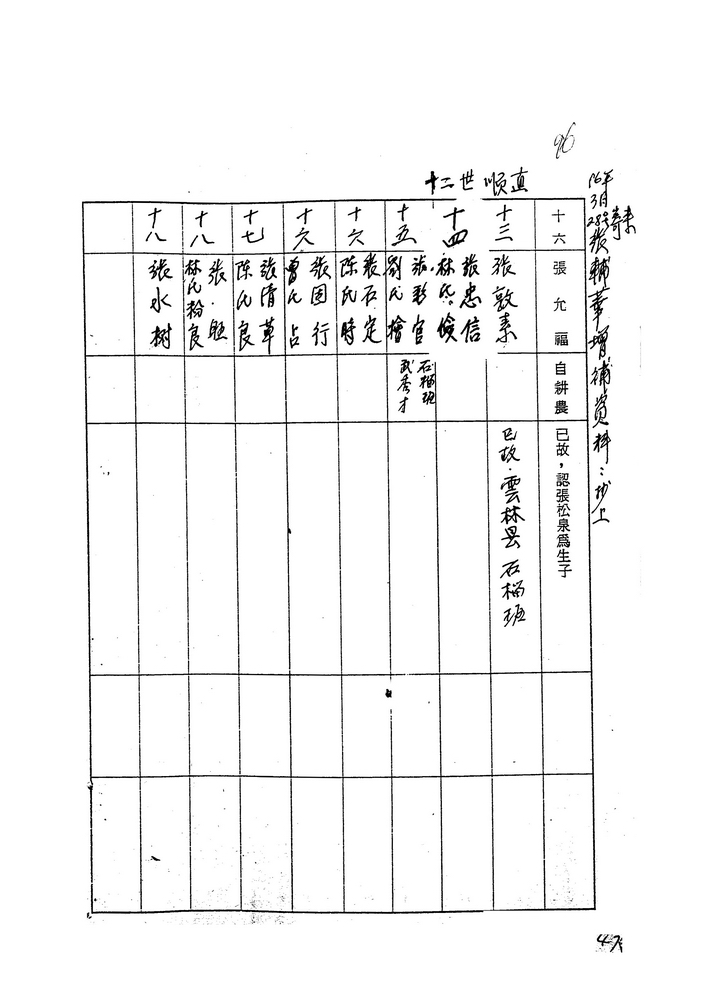 96
96年3月28号寄来
張輔華增補資料:抄上
十二世順直
十六 張允福 自耕農 已故，認張松泉為生子
十三 張敦素 已故．雲林县石榴班
十四 張忠信 林氏儉
十五 張彩官 劉氏檜 石榴班 武秀才
十六 張石定 陈氏時
十六 張固行 曾氏占
十七 張清革 陈氏良
十八 張 林氏粉良
十八 張水树